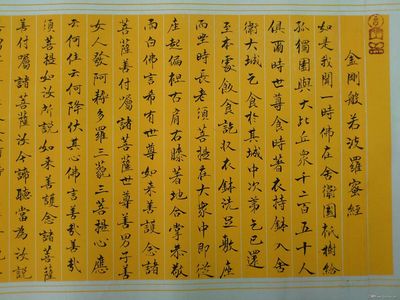 金剛般若波羅蜜經
如是我聞一時佛在舍衛國祇樹給
孤獨園與大比丘眾千二百五十人
俱爾時世尊食時著衣持鉢入舍
衛大城乞食於其城中次第乞已還
至本處飯食訖收衣鉢洗足敷座
而坐時長老須菩提在大眾中即從
座起偏袒右肩右膝著地合掌恭敬
而白佛言希有世尊如來善護念諸
菩薩善付囑諸菩薩世尊善男子善
女人發阿耨多羅三藐三菩提心應
云何住云何降伏其心佛言善哉善哉
須菩提如汝所說如來善護念諸菩薩
善付囑諸菩薩汝今諦聽當為汝說